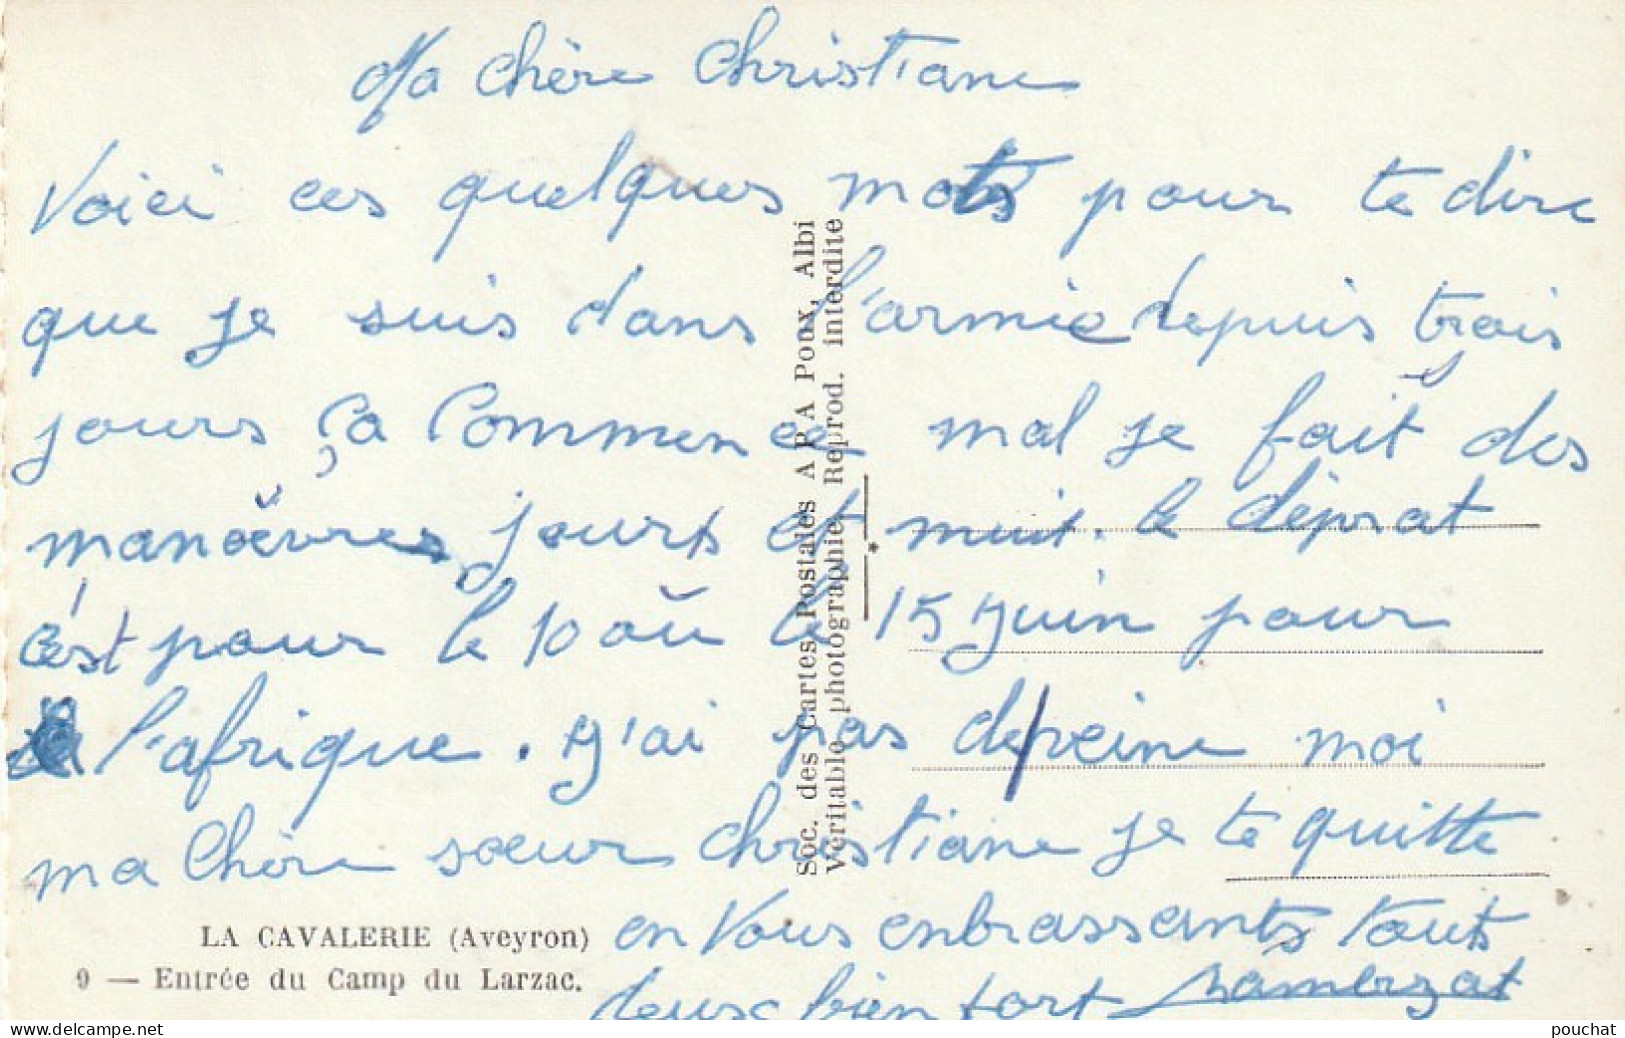 Ma chère Christiane
Voici ces quelques mots pour te dire
que je suis dans l'armie depuis trois
jours ça Commence mal je fait des
manoëvres jours et nuit. le déprat
c'est pour le 10 où le 15 Juin pour
l'afrique. J'ai pas de peine moi
ma Chère sœur christiane je te quitte
en Vous enbrassants touts
deux bien fort
LA CAVALERIE (Aveyron)
9 — Entrée du Camp du Larzac.
Soc. des Cartes Postales A P A Poux, Albi
Véritable photographie. Reprod. interdite
pouchat
www.delcampe.net